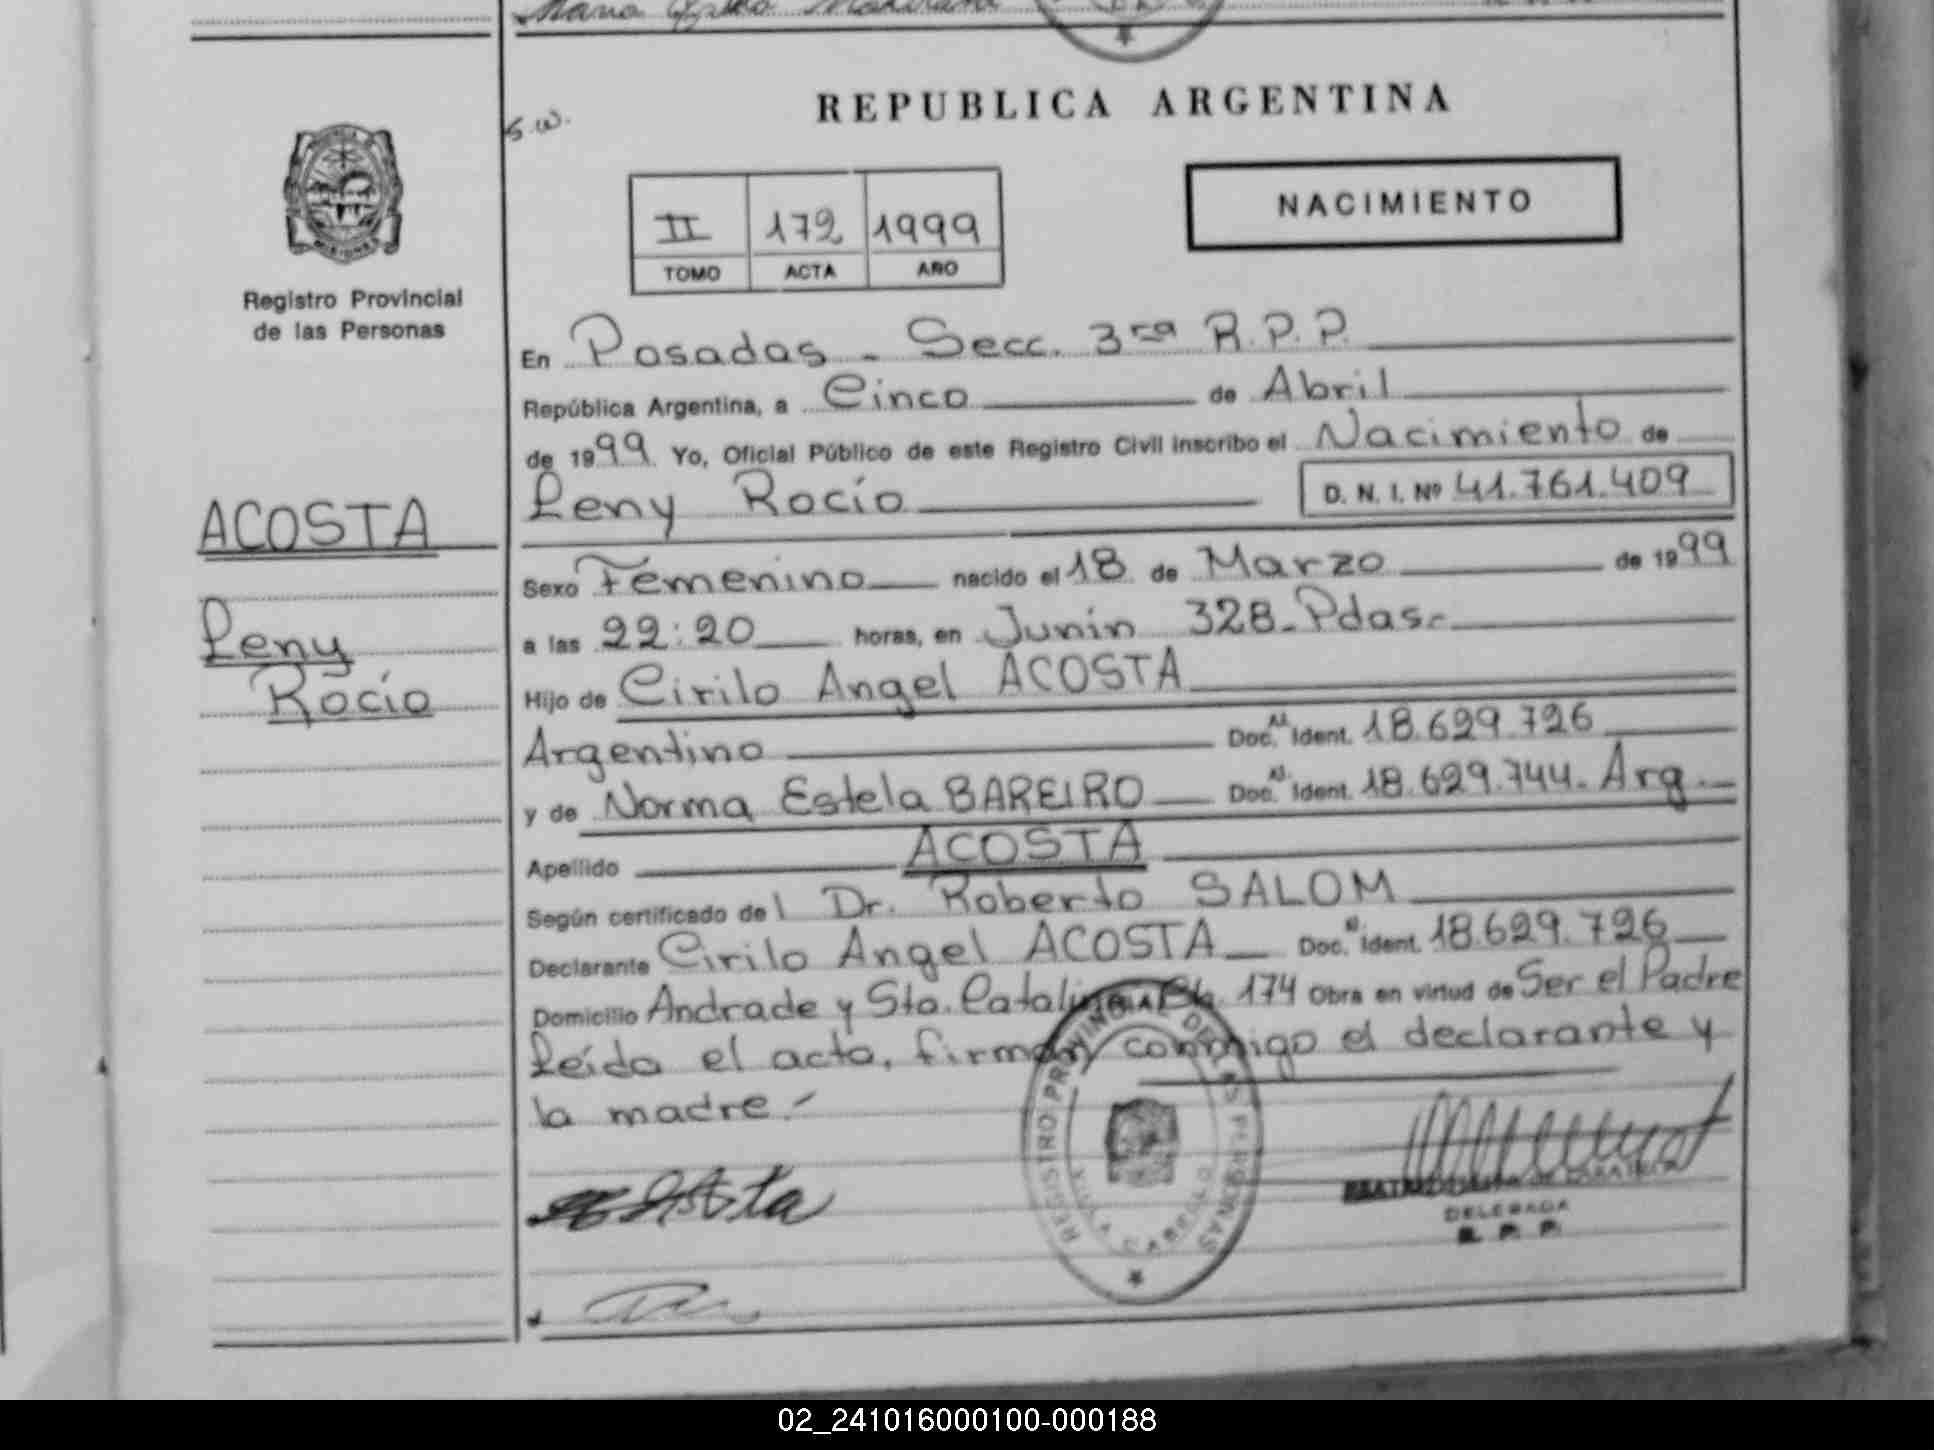 REPUBLICA ARGENTINA
S.W.
NACIMIENTO
II 172 1999
TOMO ACTA AÑO
MISIONES
Registro Provincial
de las Personas
ACOSTA
Leny
Rocío
En Posadas - Secc. 3ra R.P.P.
República Argentina, a Cinco de Abril
de 1999 Yo, Oficial Público de este Registro Civil inscribo el Nacimiento de
Leny Rocío D. N. I. Nº 41.761.409
Sexo Femenino nacido el 18 de Marzo de 1999
a las 22:20 horas, en Junín 328 - Pdas.-
Hijo de Cirilo Angel ACOSTA
Argentino Doc. N. Ident. 18.629.726
y de Norma Estela BAREIRO Doc. N. Ident. 18.629.744. Arg.
Apellido ACOSTA
Según certificado del Dr. Roberto SALOM
Declarante Cirilo Angel ACOSTA Doc. N Ident. 18.629.726
Domicilio Andrade y Sta. Catalina Ch. 174 Obra en virtud de Ser el Padre
Leída el acta, firman conmigo el declarante y
la madre.-
REGISTRO PROVINCIAL DE LAS PERSONAS
VILLA CABELLO
DELEGADA
R. P. P.
02_241016000100-000188